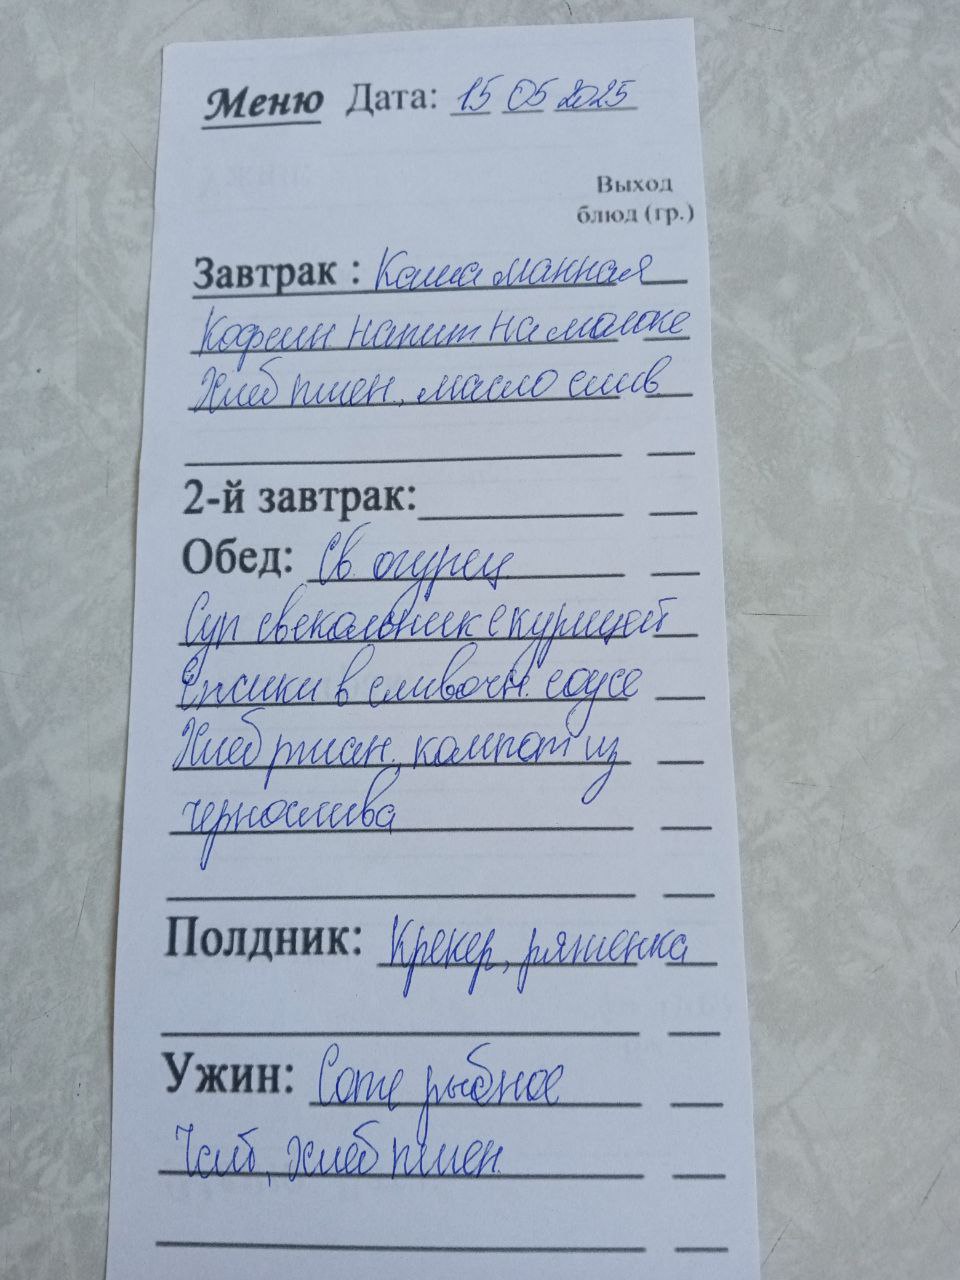 Меню Дата: 15 05 2025
Выход
блюд (гр.)
Завтрак : Каша манная
Кофеин напит на молоке
Хлеб пшен., масло слив.
2-й завтрак:
Обед: Св. огурец
Суп свекольник с курицей
Ёжики в сливочн. соусе
Хлеб ржан., компот из
чернослива
Полдник: Крекер, ряженка
Ужин: Соте рыбное
Чай, хлеб пшен.